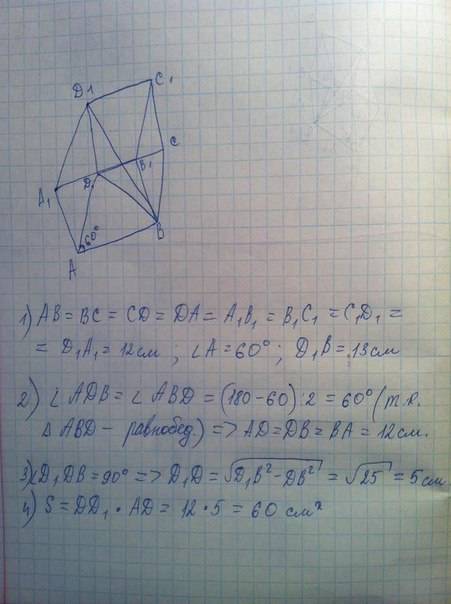 D1
C1
C
B1
D
A1
B
60°
A
1) AB = BC = CD = DA = A₁B₁ = B₁C₁ = C₁D₁ =
= D₁A₁ = 12см ; ∠A = 60° ; D₁B = 13см
2) ∠ADB = ∠ABD = (180-60):2 = 60° (т.к.
△ABD - равнобед) => AD = DB = BA = 12см.
3) ∠D₁DB = 90° => D₁D = √D₁B² - DB² = √25 = 5см
4) S = DD₁ • AD = 12 • 5 = 60 см²